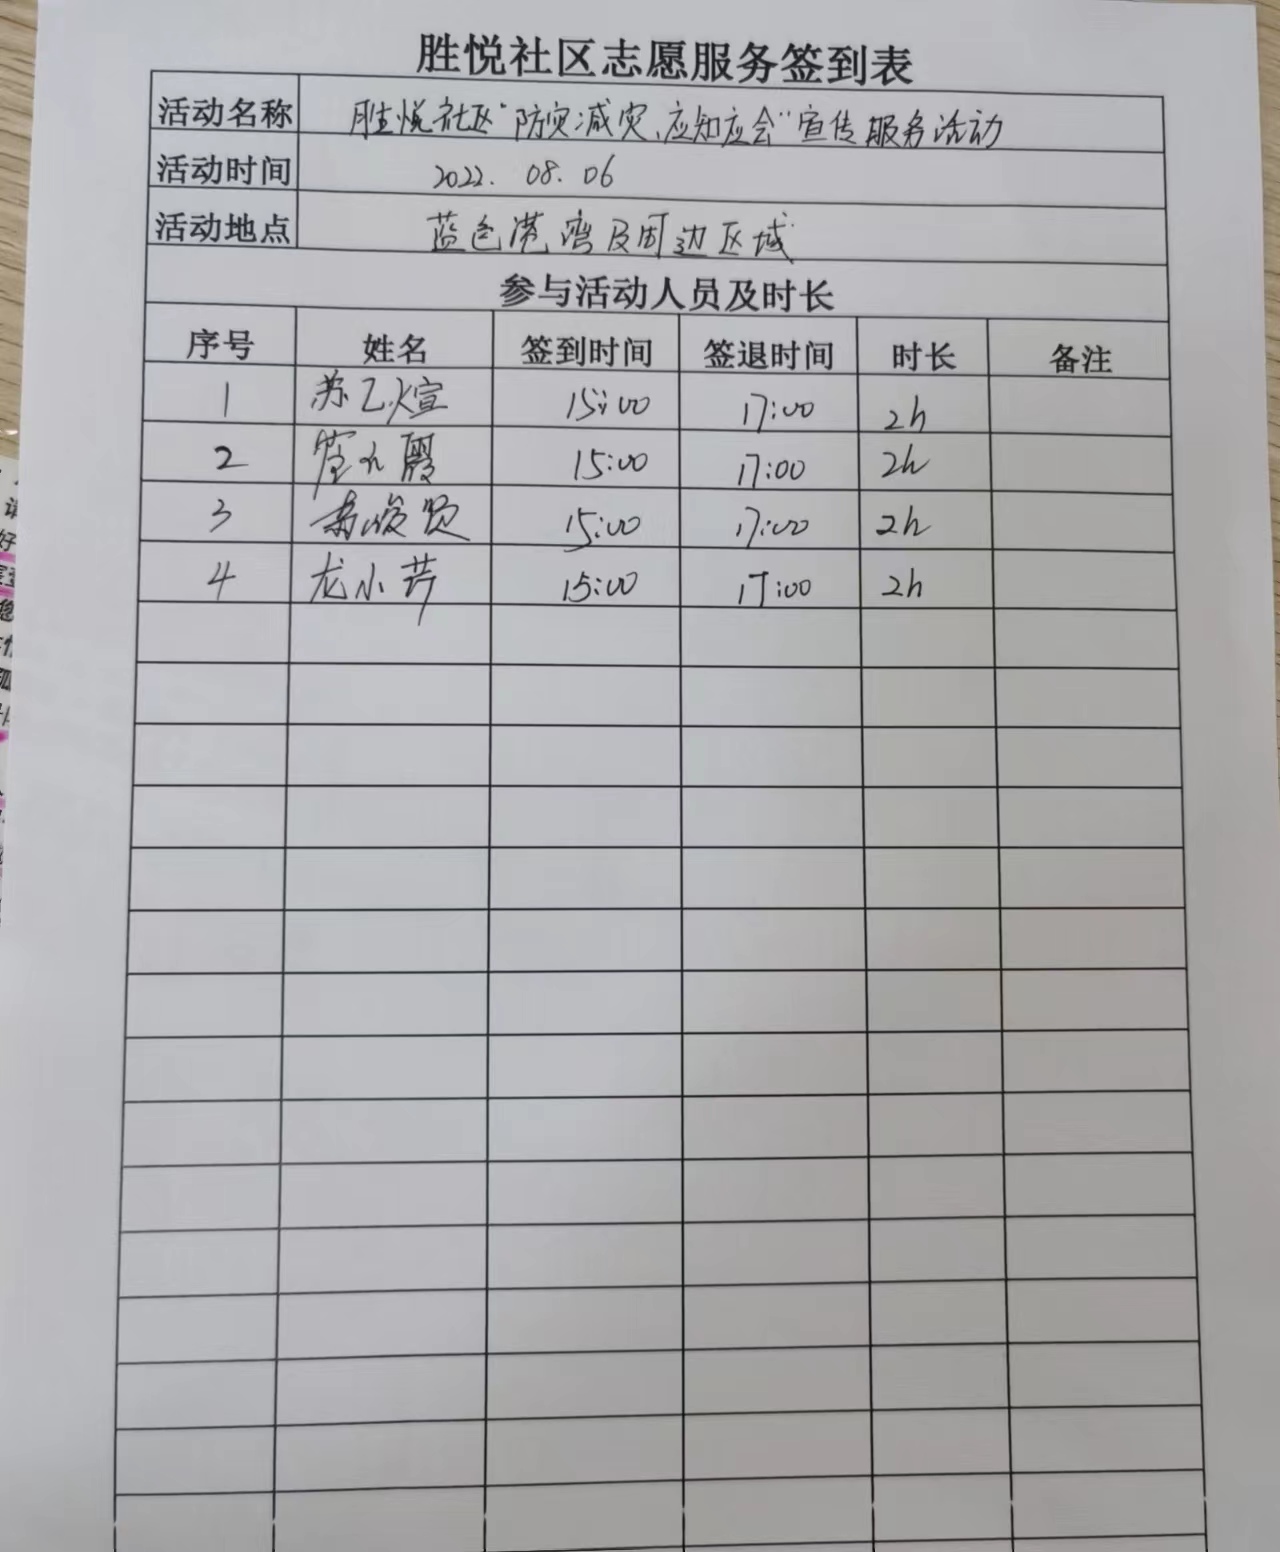 胜悦社区志愿服务签到表
活动名称 胜悦社区“防灾减灾、应知应会”宣传服务活动
活动时间 2022.08.06
活动地点 蓝色港湾及周边区域
参与活动人员及时长
序号 姓名 签到时间 签退时间 时长 备注
1 苏乙煊 15:00 17:00 2h
2 霞 15:00 17:00 2h
3 15:00 17:00 2h
4 龙小芹 15:00 17:00 2h